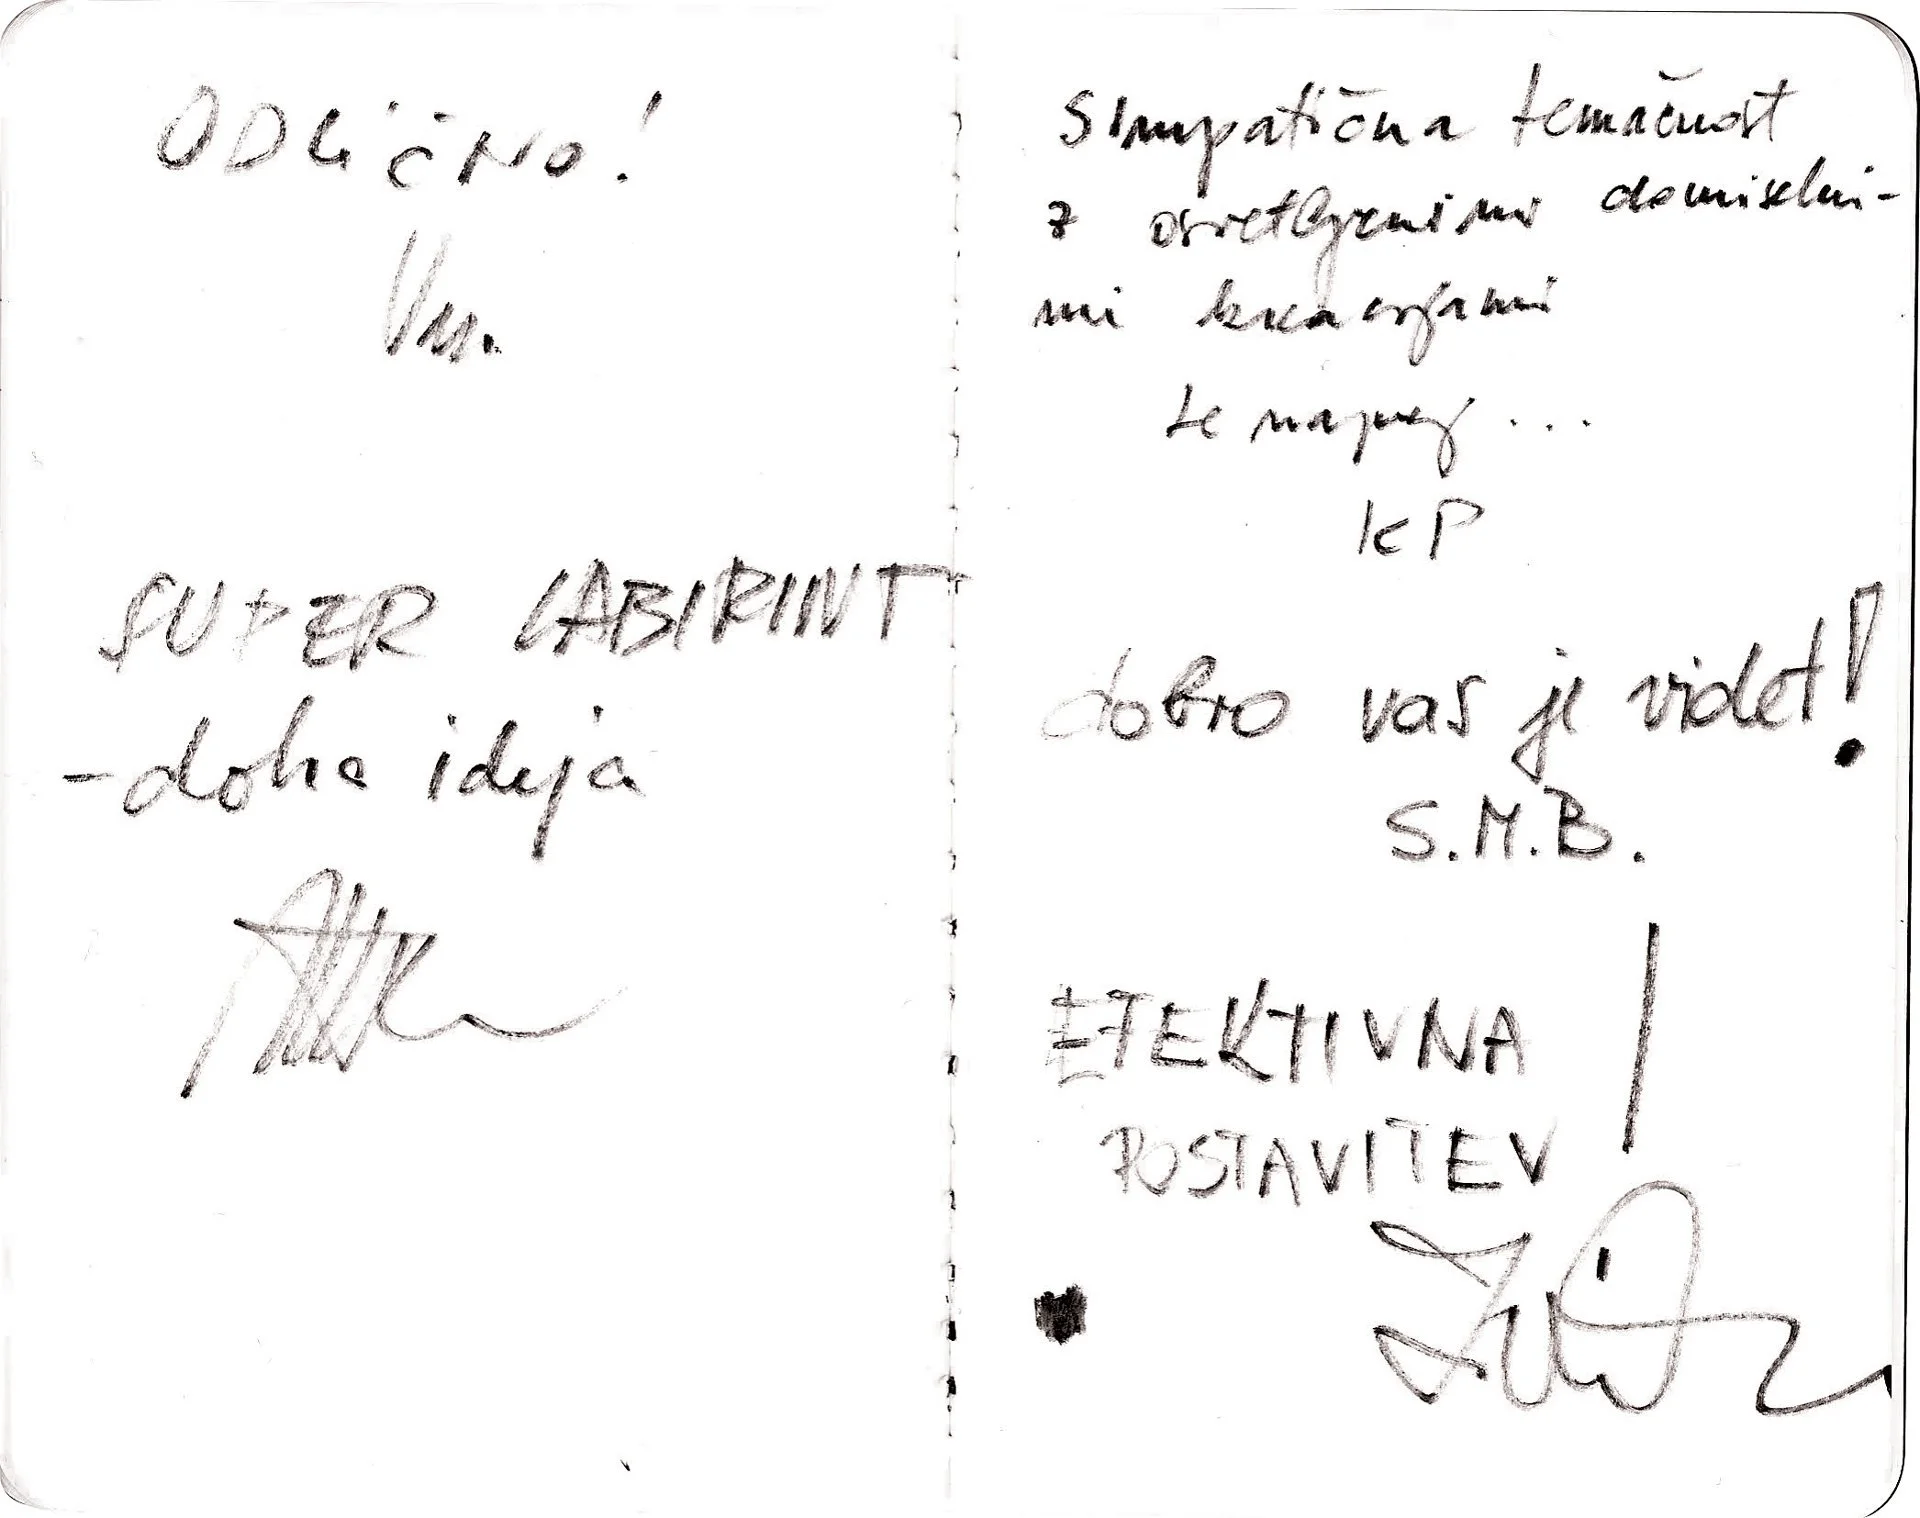 ODLIČNO!
SUPER LABIRINT
- dobra ideja
Simpatična temačnost
z osvetljenimi domiselni-
mi kreacijami
Le naprej ...
KP
dobro vas je videt!
S.M.B.
EFEKTIVNA
POSTAVITEV !